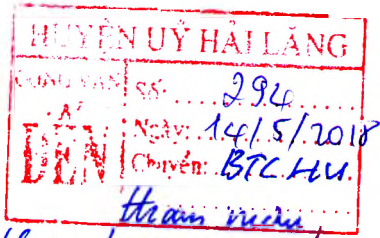 HUYỆN UỶ HẢI LĂNG
CÔNG VĂN
ĐẾN
Số: 294
Ngày: 14/5/2018
Chuyển: BTC.HU
tham mưu